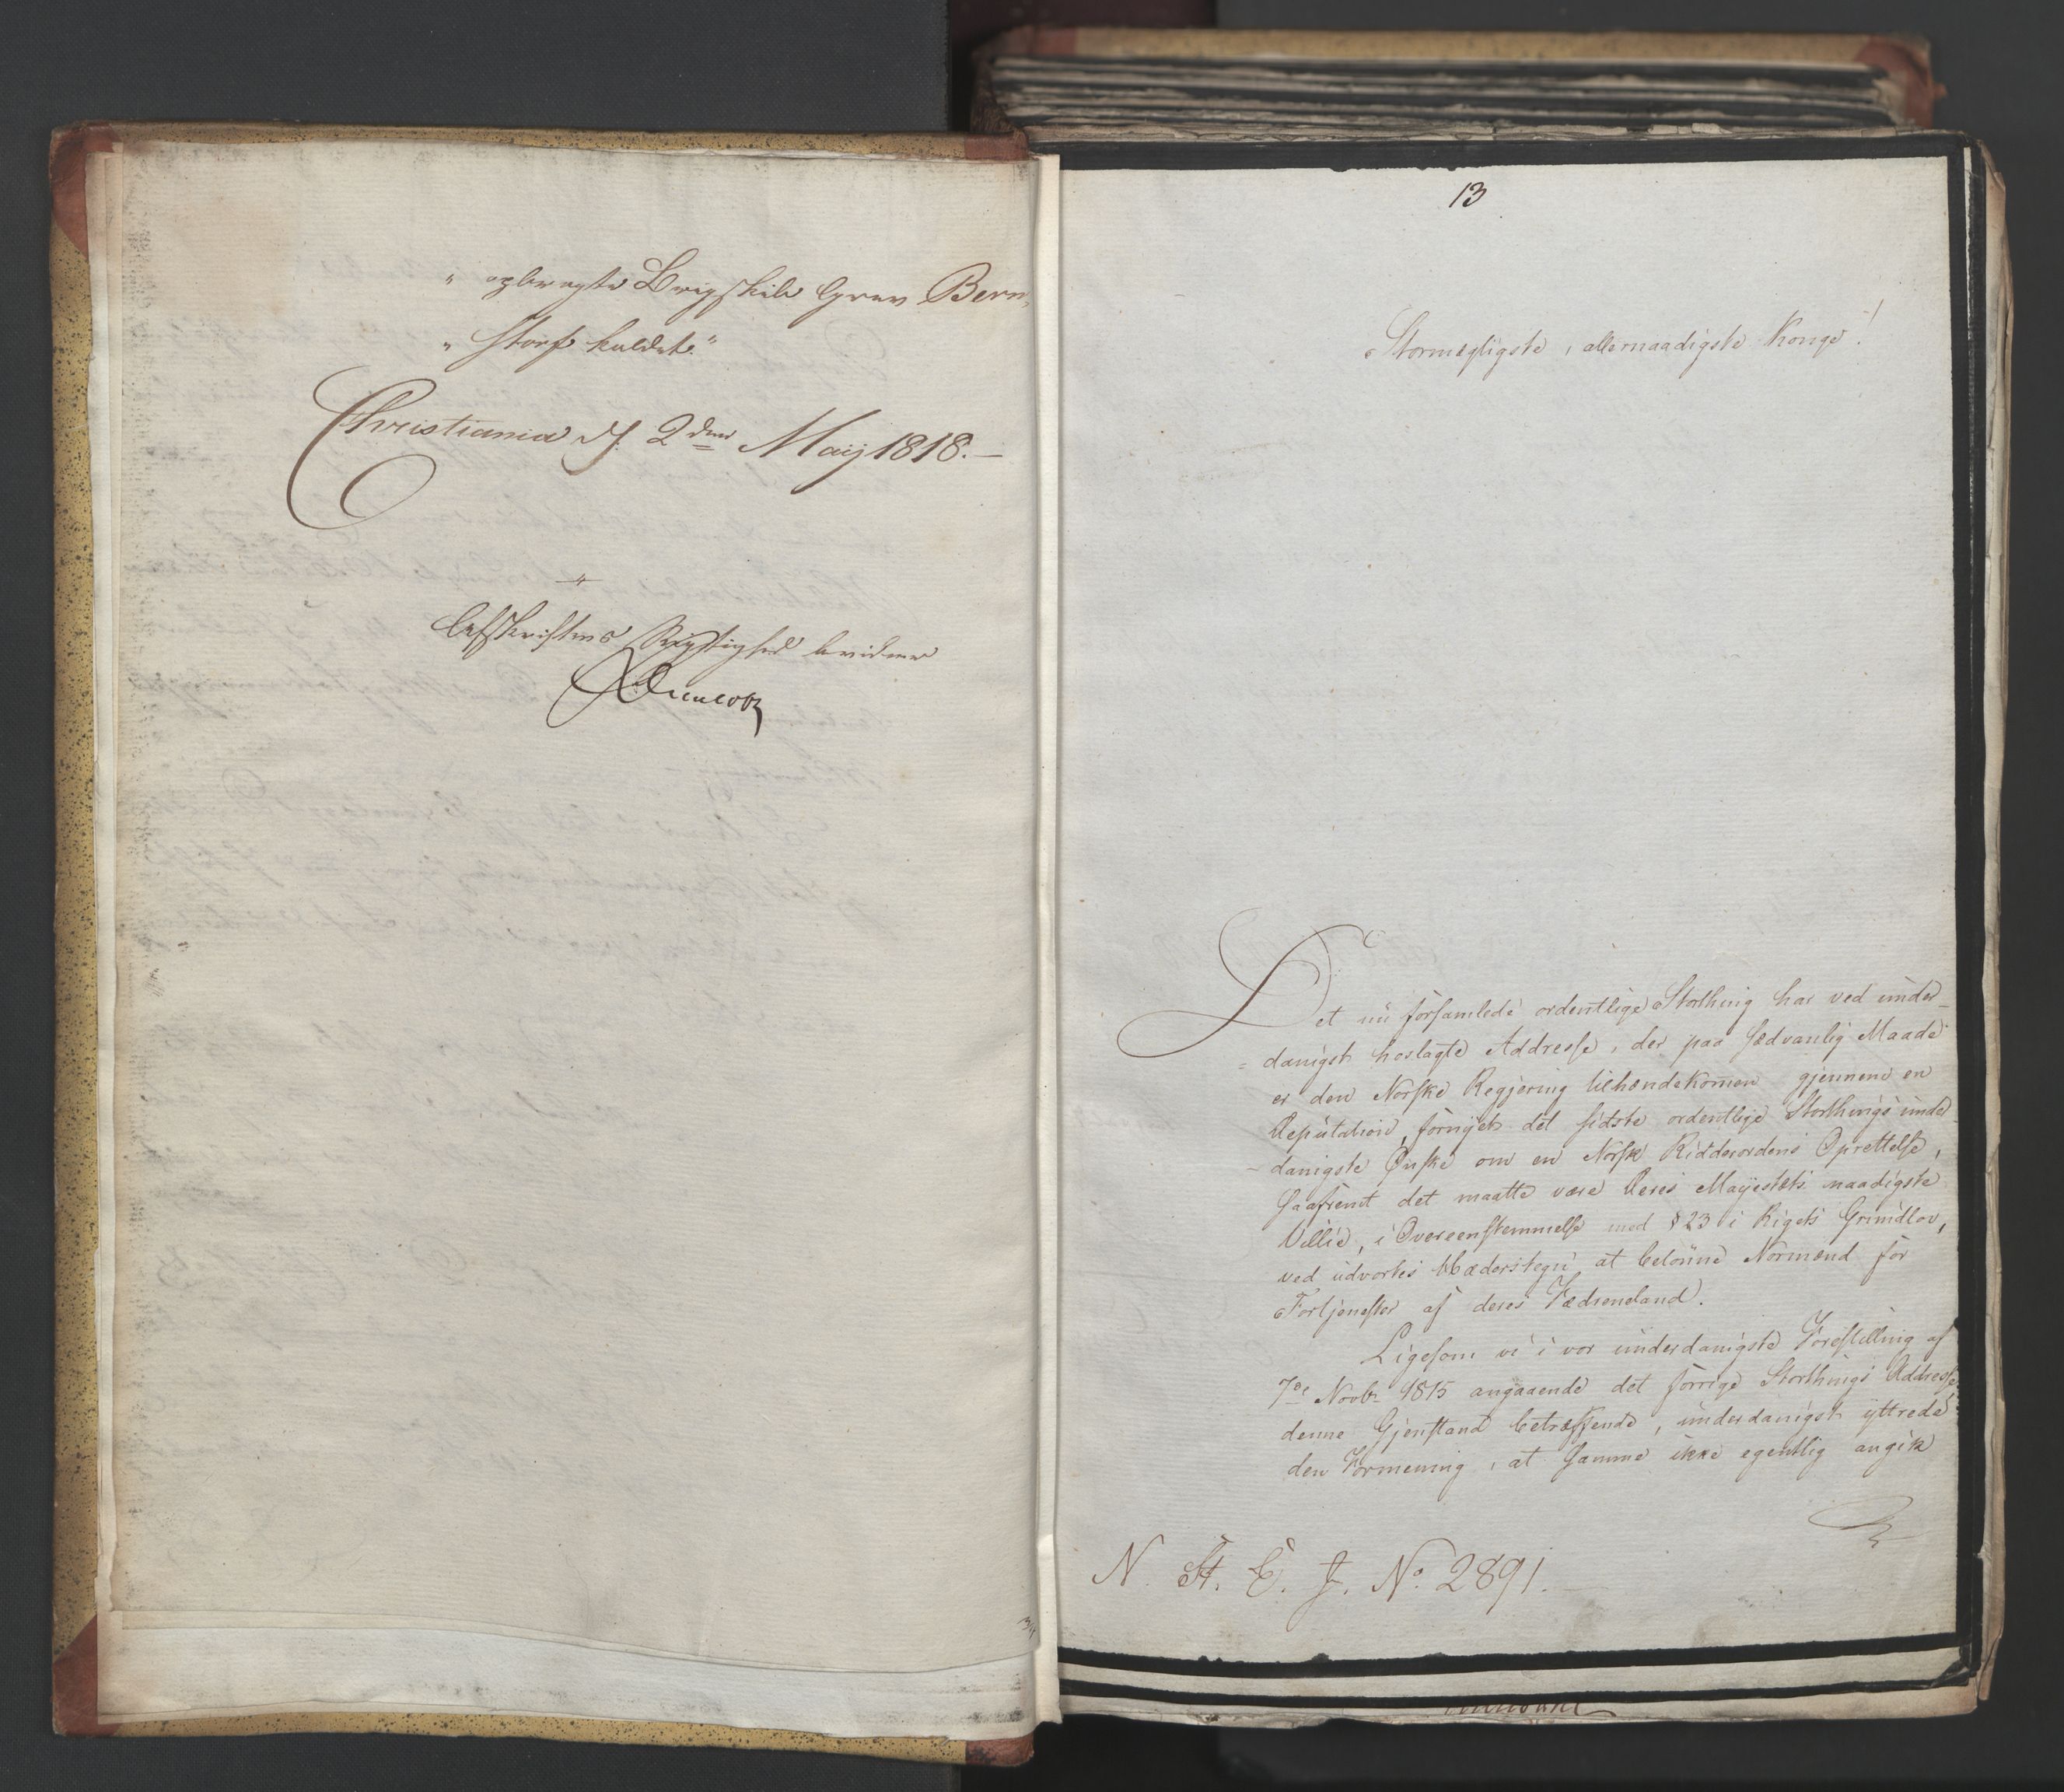 " opbragte Brigskib Grev Bern-
" storf kaldet."
Christiania d. 2den Maij 1818. —
Afskriftens Rigtighed bevidner
13
Stormægtigste, allernaadigste Konge!
Det nu forsamlede ordentlige Storthing har ved under-
danigst hoslagte Addresse, der paa sædvanlig Maade
er den Norske Regjering tilhændekommen gjennem en
Deputation, fornyet det sidste ordentlige Storthings under-
danigste Ønske om en Norsk Ridderordens Oprettelse,
saafremt det maatte være Deres Majestæts naadigste
Villie, i Overeenstemmelse med § 23 i Rigets Grundlov,
ved udvortes Hæderstegn at belønne Normænd for
Fortjenester af deres Fædreneland.
Ligesom vi i vor underdanigste Forestilling af
7de Novbr 1815 angaaende det forrige Storthings Addresse
denne Gjenstand betræffende, underdanigst yttrede
den Formening, at samme ikke egentlig angik
N. St. E. J. No. 2891.